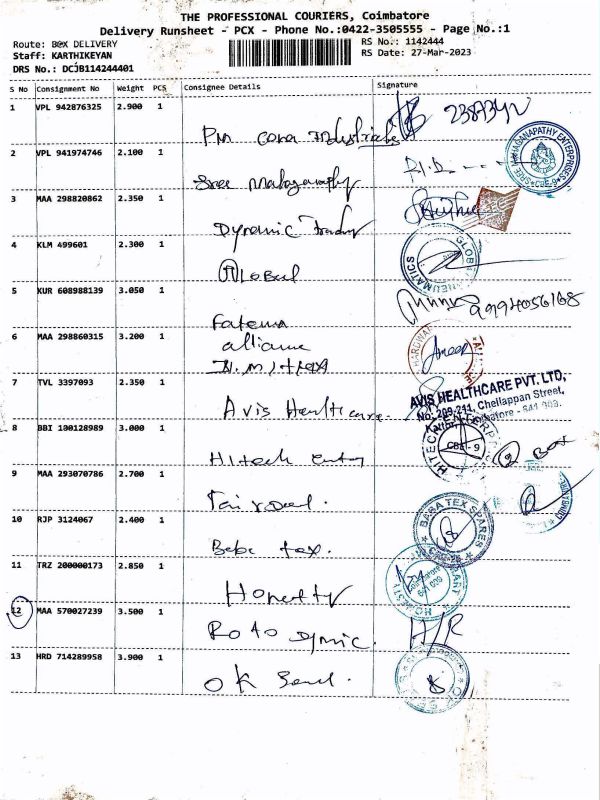 THE PROFESSIONAL COURIERS, Coimbatore
Delivery Runsheet - PCX - Phone No.:0422-3505555 - Page No.:1
Route: B@X DELIVERY
Staff: KARTHIKEYAN
DRS No.: DCJB114244401
RS No.: 1142444
RS Date: 27-Mar-2023
S No Consignment No Weight PCS Consignee Details Signature
1 VPL 942876325 2.900 1
2 VPL 941974746 2.100 1
Sree Mahaganapathy
SREE MAHAGANAPATHY ENTERPRISES CBE-9
3 MAA 298820862 2.350 1
Dynamic
4 KLM 499601 2.300 1
Global
GLOBAL PNEUMATICS
5 KUR 608988139 3.050 1
9994056168
Fatema
6 MAA 298860315 3.200 1
alliance
HARDWARE
7 TVL 3397093 2.350 1
Avis Healthcare
AVIS HEALTHCARE PVT. LTD,
No: 209-211, Chellappan Street,
Coimbatore - 641
8 BBI 100128989 3.000 1
Hitech
HITECH CBE - 9
Box
9 MAA 293070786 2.700 1
10 RJP 3124067 2.400 1
tex.
BABA TEX SPARES
11 TRZ 200000173 2.850 1
Honesty
HONESTY MART
12 MAA 570027239 3.500 1
Roto
H/R
13 HRD 714289958 3.900 1
OK